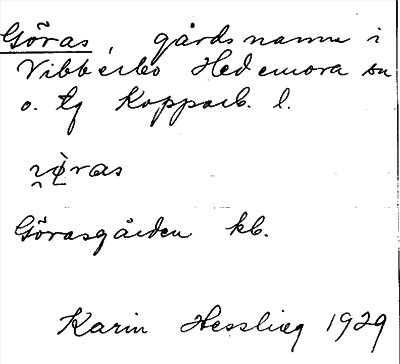 Göras, gårdsnamn i
Vibberbo Hedemora sn
o. tg Kopparb. l.
Görasgården kb.
Karin Hessling 1929